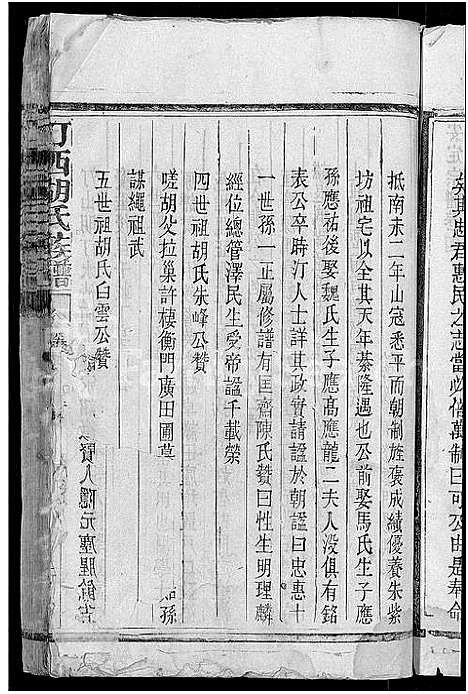 矣其忠君惠民之志當必偕萬制曰可公由是奉命
抵南未二年山寇悉平而朝制旌褒成績優養朱紫
坊祖宅以全其天年綦隆遇也公前娶馬氏生子應
孫應祐後娶魏氏生子應高應龍二夫人没俱有銘
表公卒時汀人士詳其政實請謚於朝謚曰忠惠十
一世孫一正屬修譜有匡齋陳氏贊曰性生明理麟
經位總管澤民生受帝謚千載榮
四世祖胡氏朱峰公贊
嗟胡父拉巢許棲衡門廣田圃莫
孫
謀繩祖武
五世祖胡氏白雲公贊
賢人隱元塵腥餘古
汀西胡氏族譜